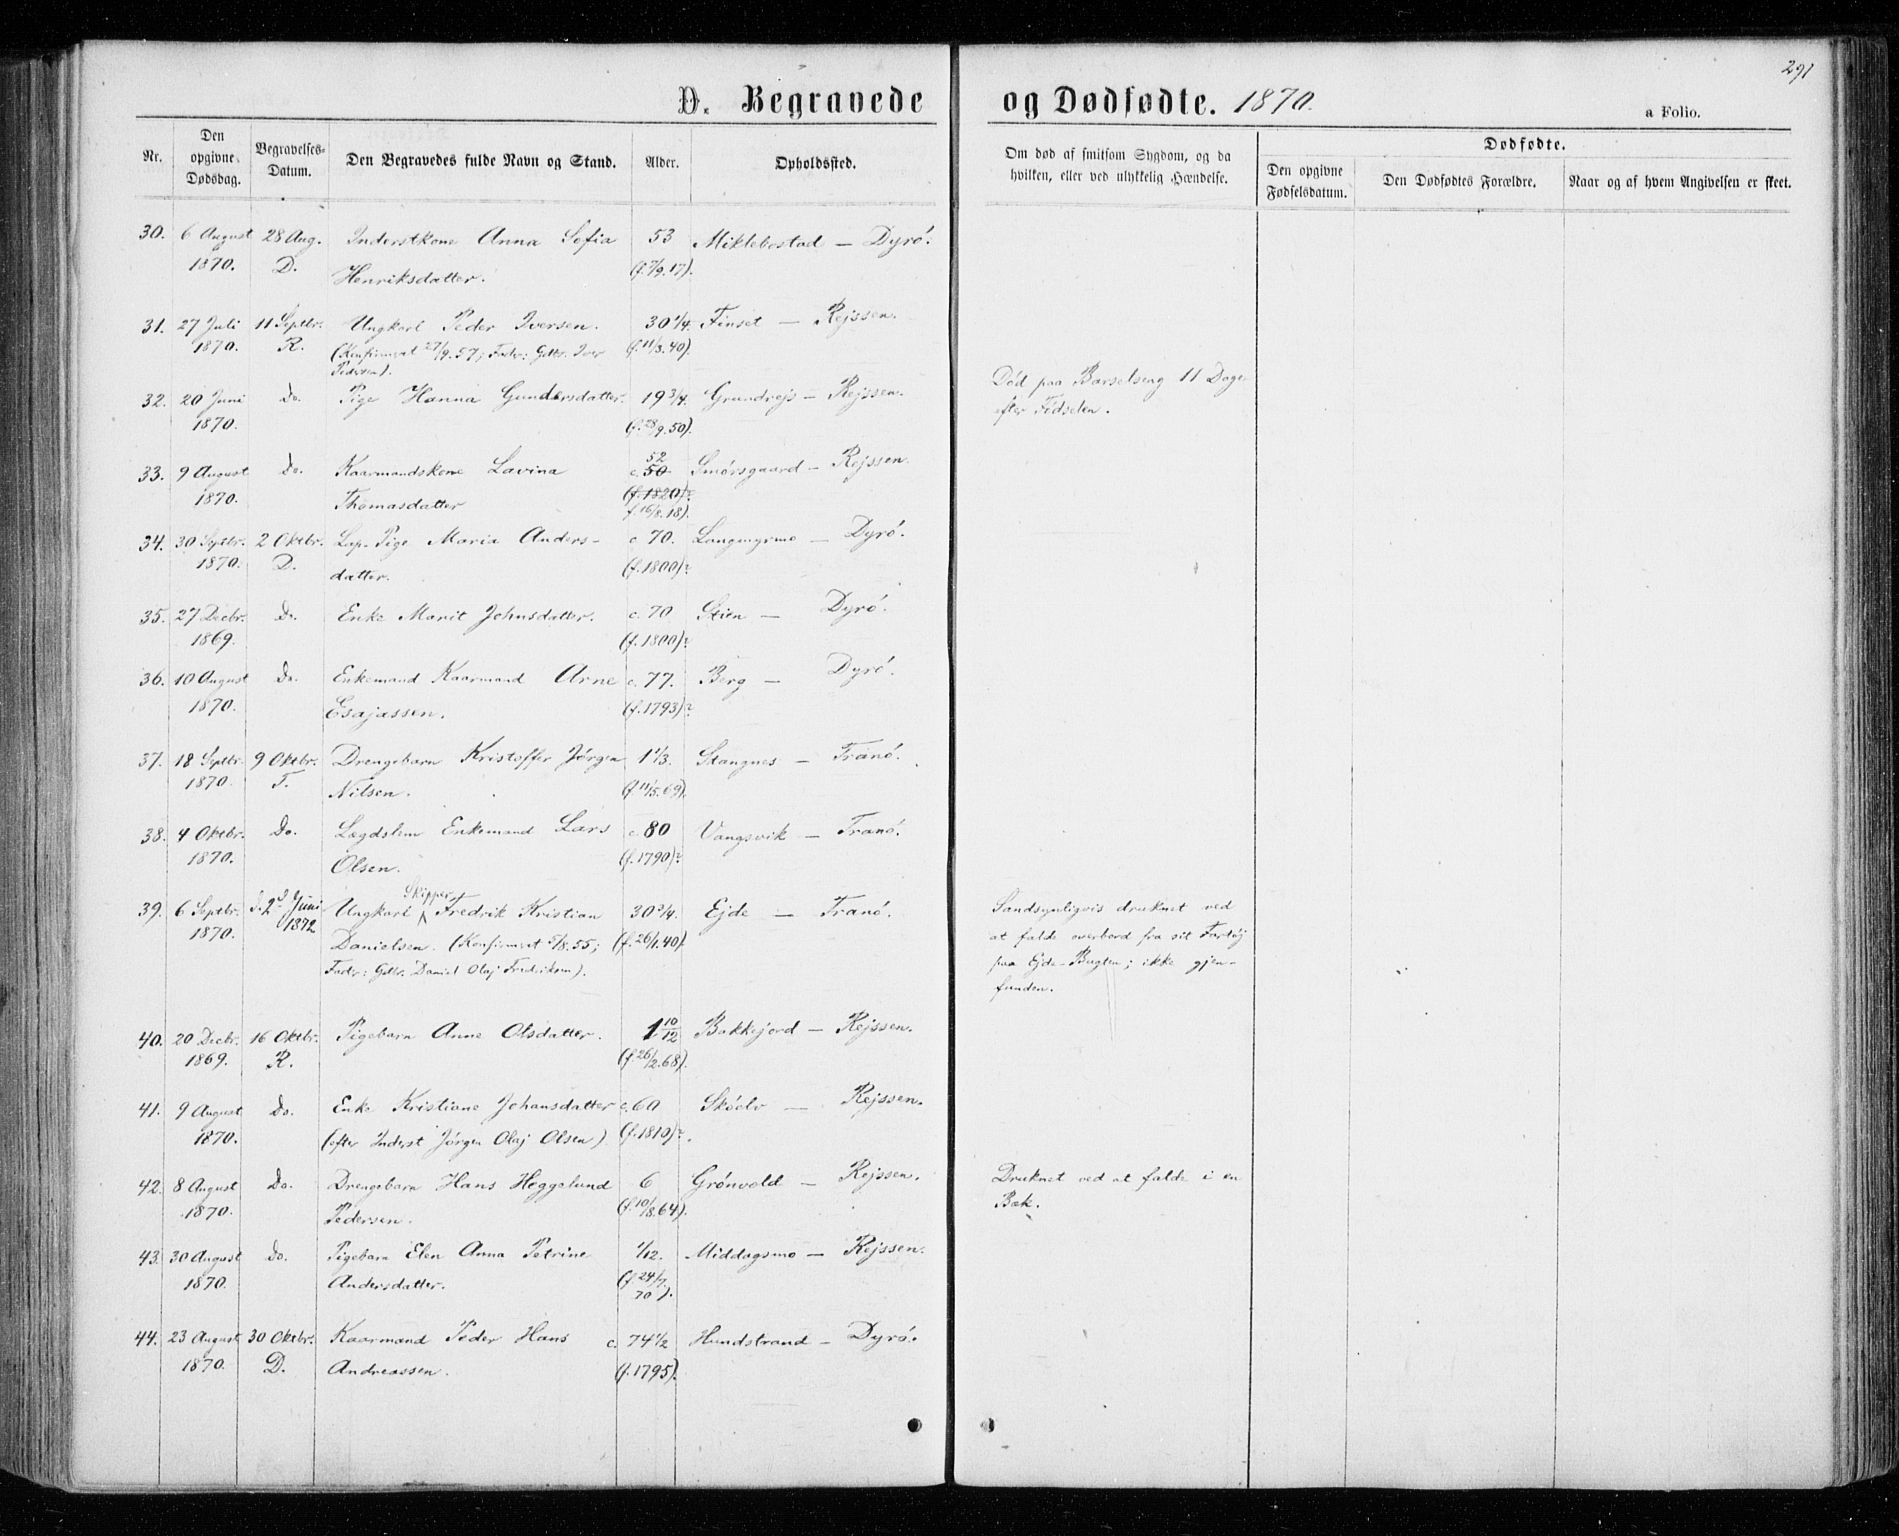 291
D. Begravede og Dødfødte. 1870.
a Folio.
Nr. | Den opgivne Dødsdag. | Begravelses-Datum. | Den Begravedes fulde Navn og Stand. | Alder. | Opholdssted. | Om død af smitsom Sygdom, og da hvilken, eller ved ulykkelig Hændelse. | Dødfødte. | Den opgivne Fødselsdatum. | Den Dødfødtes Forældre. | Naar og af hvem Angivelsen er skeet.
30. 6 August 28 Aug. Inderstkone Anna Sofia 53 Miklebostad — Dyrö.
1870. D. Henriksdatter. (f. 7/9.17).
31. 27 Juli 11 Septbr. Ungkarl Peder Iversen. 30 1/4. Finset — Rejssen.
1870. R. (Konfirmeret 27/9.57; Fader: Gdbr. Iver (f. 11/3.40).
Pedersen).
32. 20 Juni Do. Pige Hanna Gundersdatter. 19 3/4. Grundrejs — Rejssen. Död paa Barselseng 11 Dage
1870. (f. 28/9.50). efter Födselen.
33. 9 August Do. Kaarmandskone Lavina 52 c. 50 Smörsgaard — Rejssen.
1870. Thomasdatter (f. 1820)?
f. 16/8.18).
34. 30 Septbr. 2 Oktbr. Lap-Pige Maria Anders- c. 70. Langmyrmo — Dyrö.
1870. D. datter. (f. 1800)?
35. 27 Decbr. Do. Enke Marit Johnsdatter. c. 70 Stien — Dyrö.
1869. (f. 1800)?
36. 10 August Do. Enkemand Kaarmand Arne c. 77. Berg — Dyrö.
1870. Esajassen. (f. 1793)?
37. 18 Septbr. 9 Oktbr. Drengebarn Kristoffer Jörgen 1 1/3. Stangnes — Tranö.
1870. T. Nilsen. (f. 11/5.69).
38. 4 Oktbr. Do. Lægdslem Enkemand Lars c. 80 Vangsvik — Tranö.
1870. Olsen. (f. 1790)?
39. 6 Septbr. d. 2d Juni Ungkarl Skipper Fredrik Kristian 30 3/4. Ejde — Tranö. Sandsynligvis druknet ved
1870. 1872 Danielsen. (Konfirmeret 5/8.55; (f. 26/1.40). at falde overbord fra sit Fartöj
Fader: Gdbr. Daniel Olaj Fredriksen). paa Ejde-Bugten; ikke gjen-
funden.
40. 20 Decbr. 16 Oktbr. Pigebarn Anne Olsdatter. 1 10/12 Bakkejord — Rejssen.
1869. R. (f. 26/2.68).
41. 9 August Do. Enke Kristiane Johansdatter c. 60 Sköelv — Rejssen.
1870. (efter Inderst Jörgen Olaj Olsen) (f. 1810)?
42. 8 August Do. Drengebarn Hans Heggelund 6 Grönvold — Rejssen. Druknet ved at falde i en
1870. Pedersen. (f. 10/8.64). Bæk.
43. 30 August Do. Pigebarn Elen Anna Petrine 1/12. Middagsmo — Rejssen.
1870. Andersdatter. (f. 24/7.
70).
44. 23 August 30 Oktbr. Kaarmand Peder Hans c. 74 1/2 Hundstrand — Dyrö.
1870. D. Andreassen. (f. 1795).